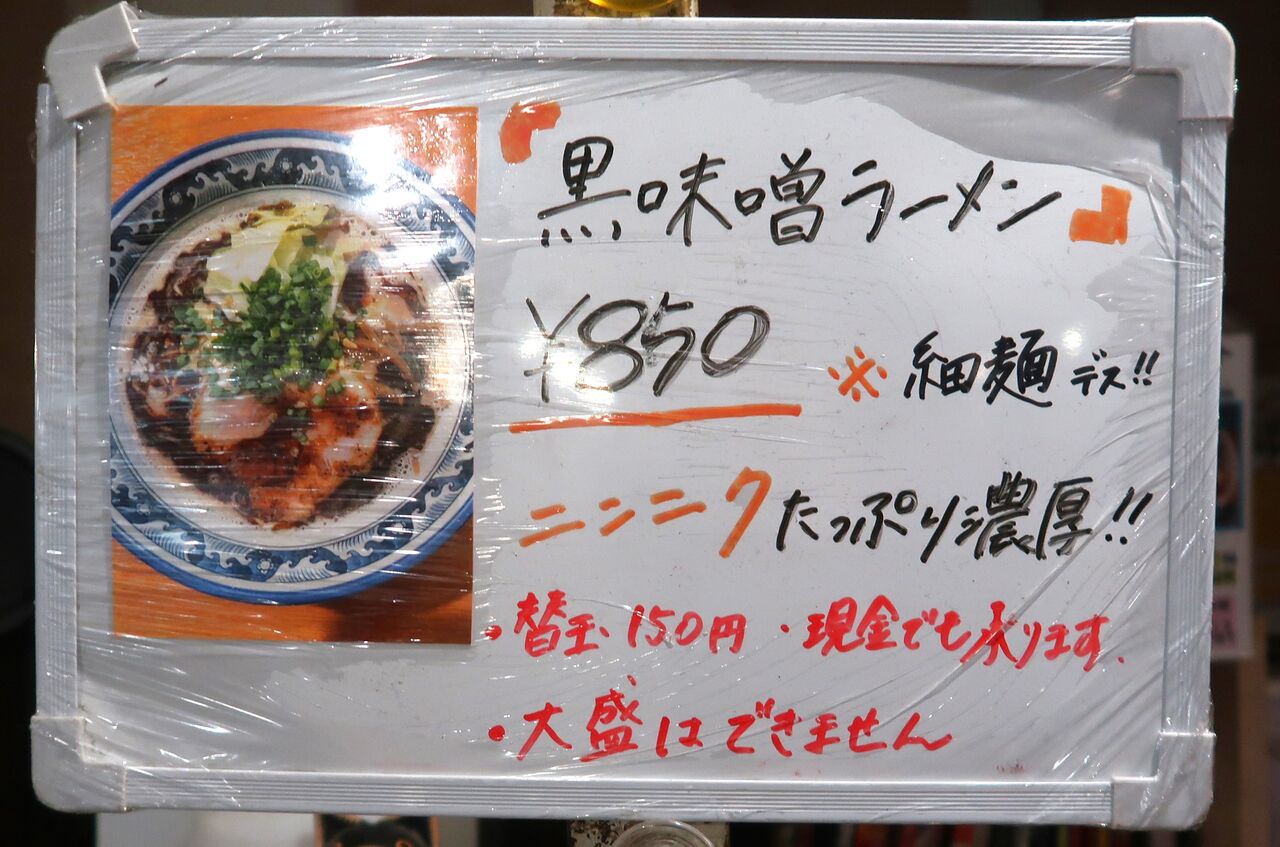 『黒味噌ラーメン』
¥850 ※細麺デス!!
ニンニクたっぷり濃厚!!
・替玉150円・現金でも承ります.
・大盛はできません